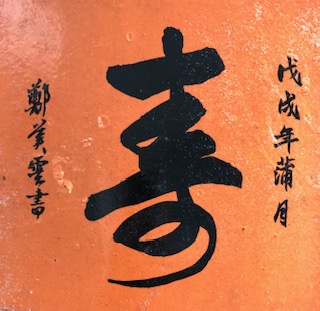 戊戌年蒲月
寿
鄭美雲書